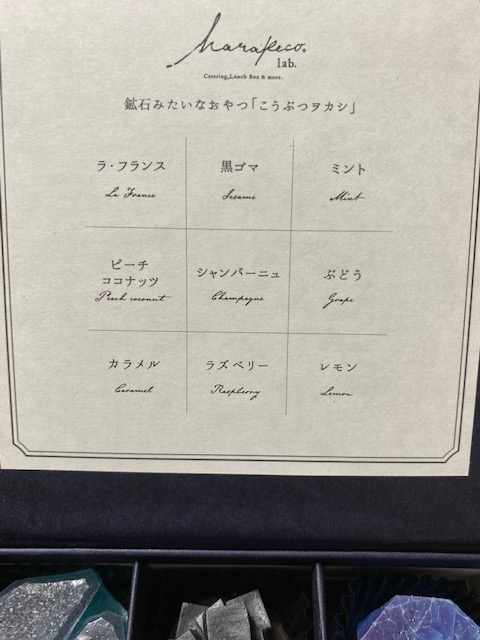 harapeco®
lab.
Catering,Lunch Box & more.
鉱石みたいなおやつ「こうぶつヲカシ」
ラ・フランス
La France
黒ゴマ
Sesame
ミント
Mint
ピーチ
ココナッツ
Peach coconut
シャンパーニュ
Champagne
ぶどう
Grape
カラメル
Caramel
ラズベリー
Raspberry
レモン
Lemon